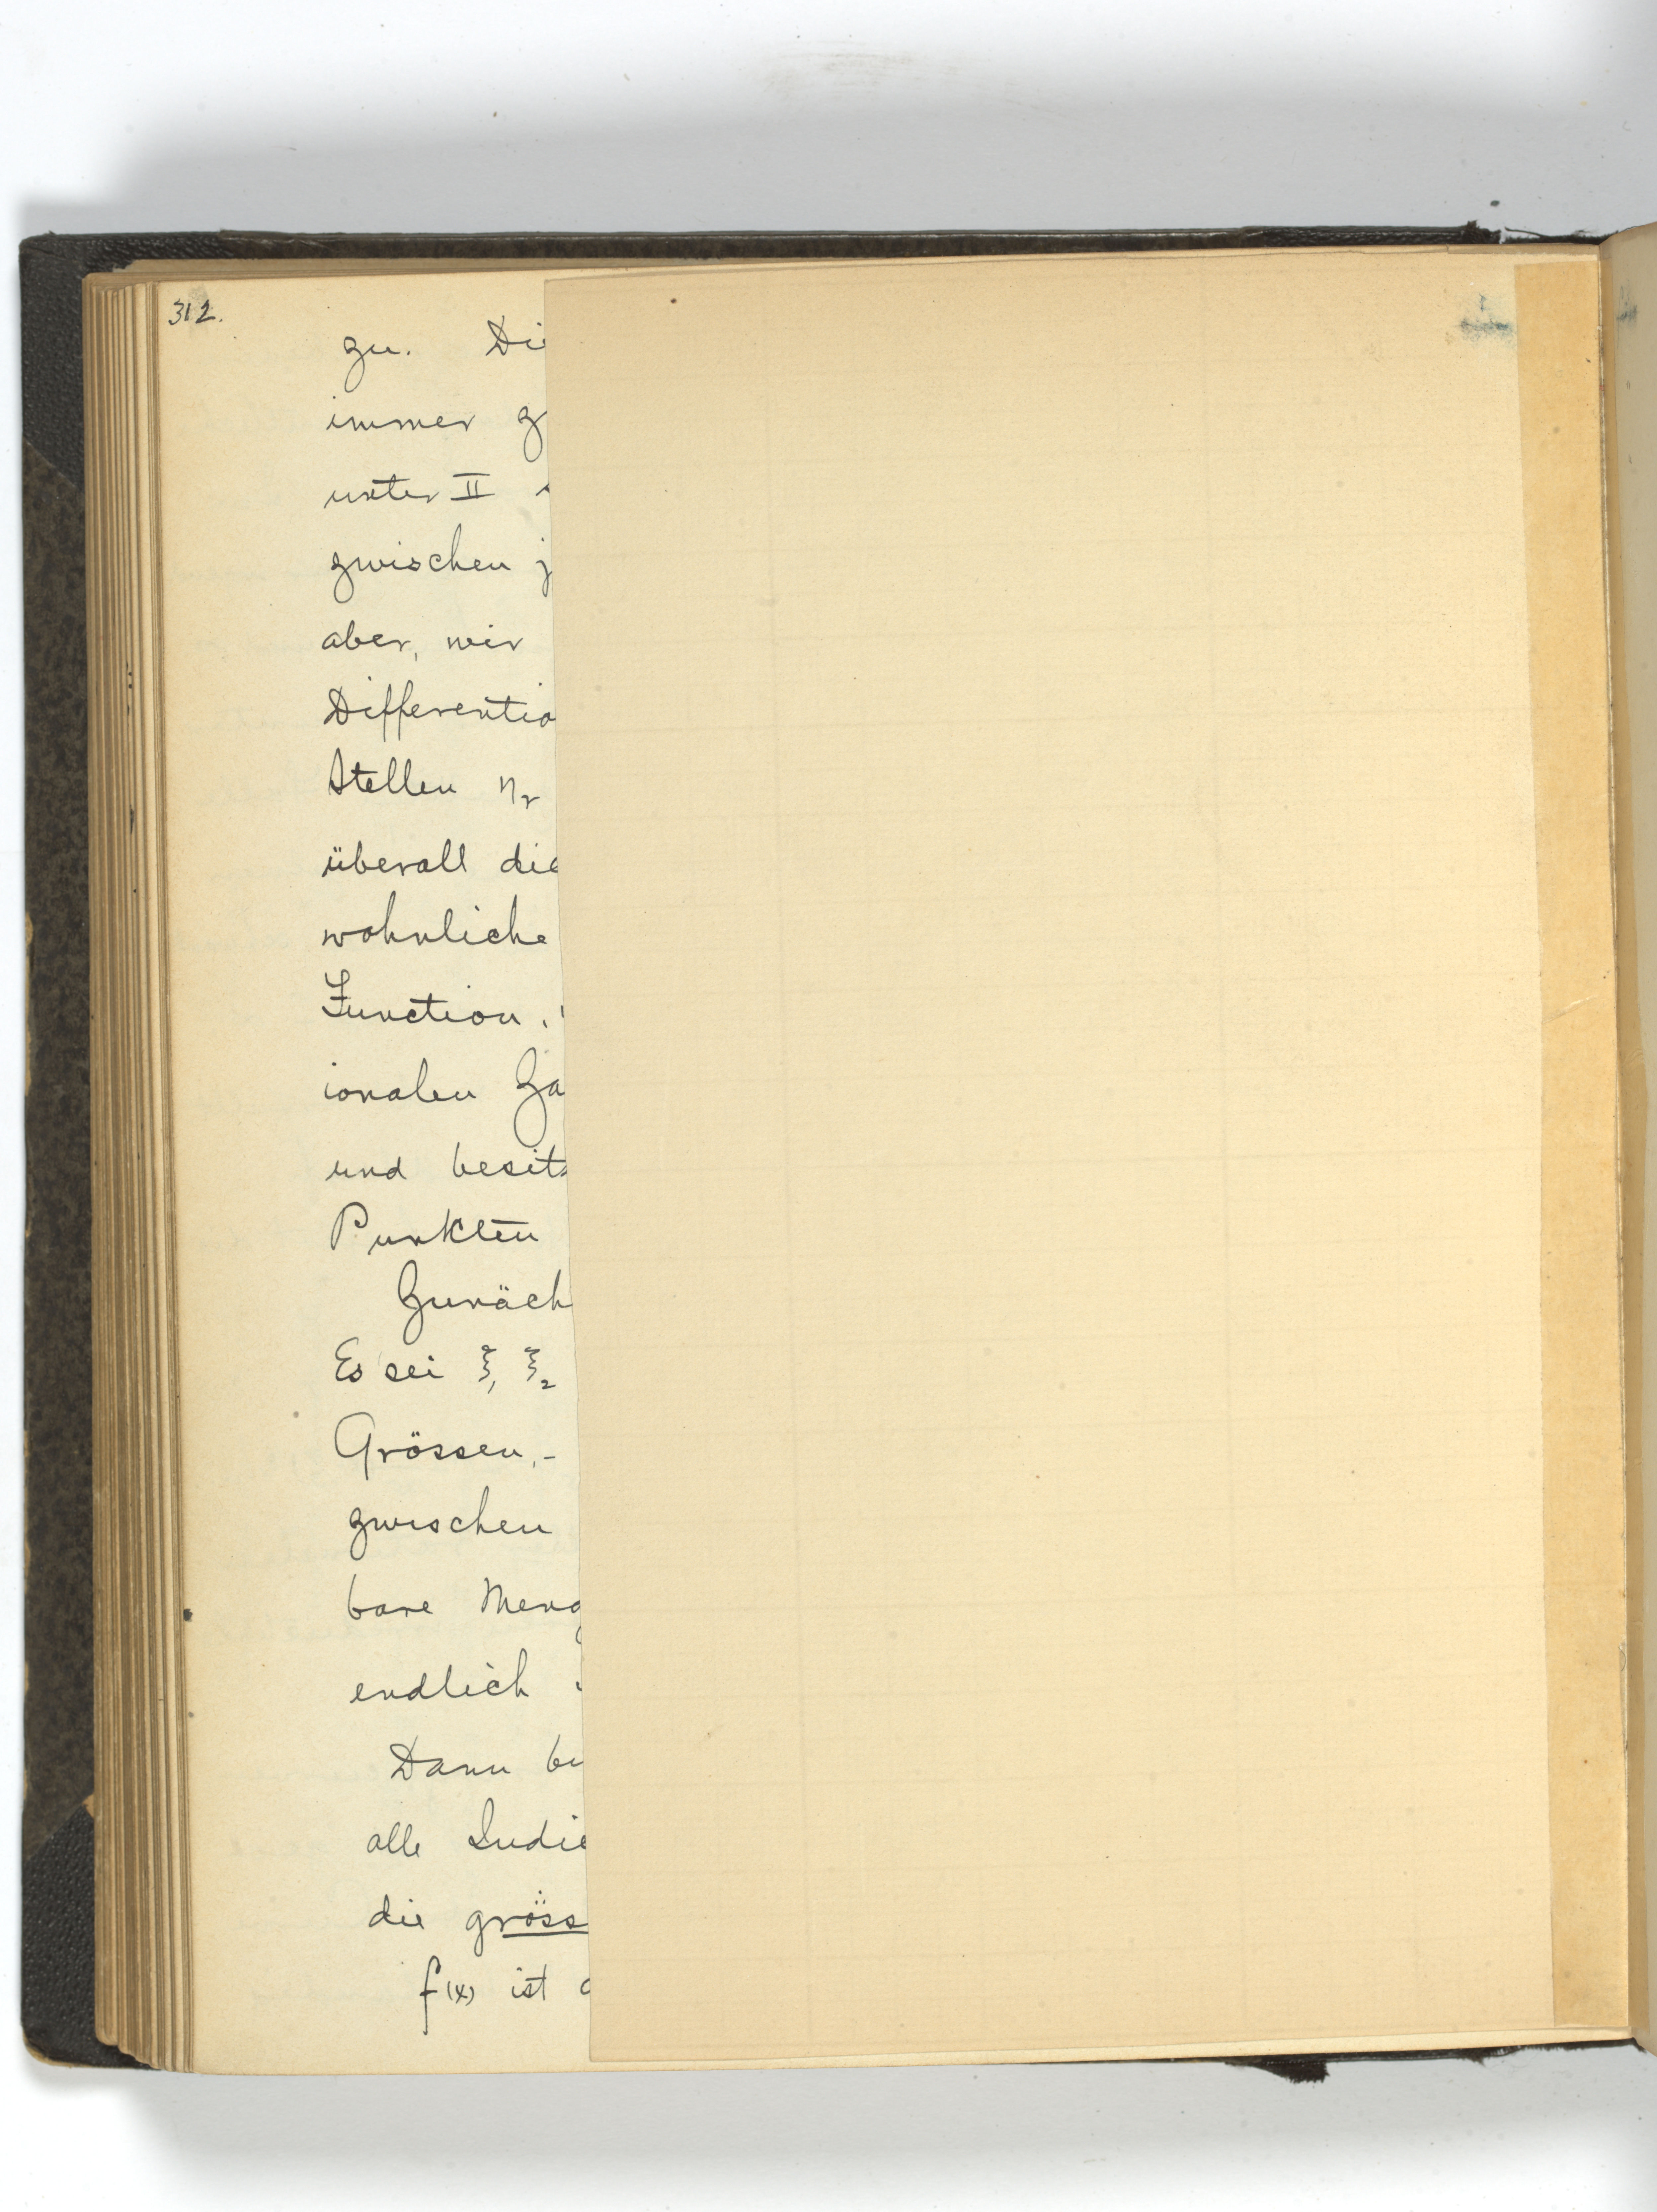 312.
zu. Di
immer g
unter II
zwischen j
aber, wir
Differentia
Stellen η_r
überall die
wohnliche
Function.
ionalen Za
und besitz
Punkten
Zunäch
Es sei ξ₁ ξ₂
Grössen, -
zwischen
bare Meng
endlich
Dann be
alle Indic
die gröss
f(x) ist